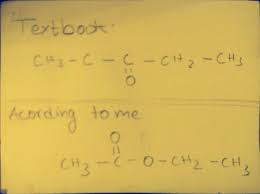 Textbook:
CH₃ - C - C - CH₂ - CH₃
||
O
Acording to me
O
||
CH₃ - C - O - CH₂ - CH₃